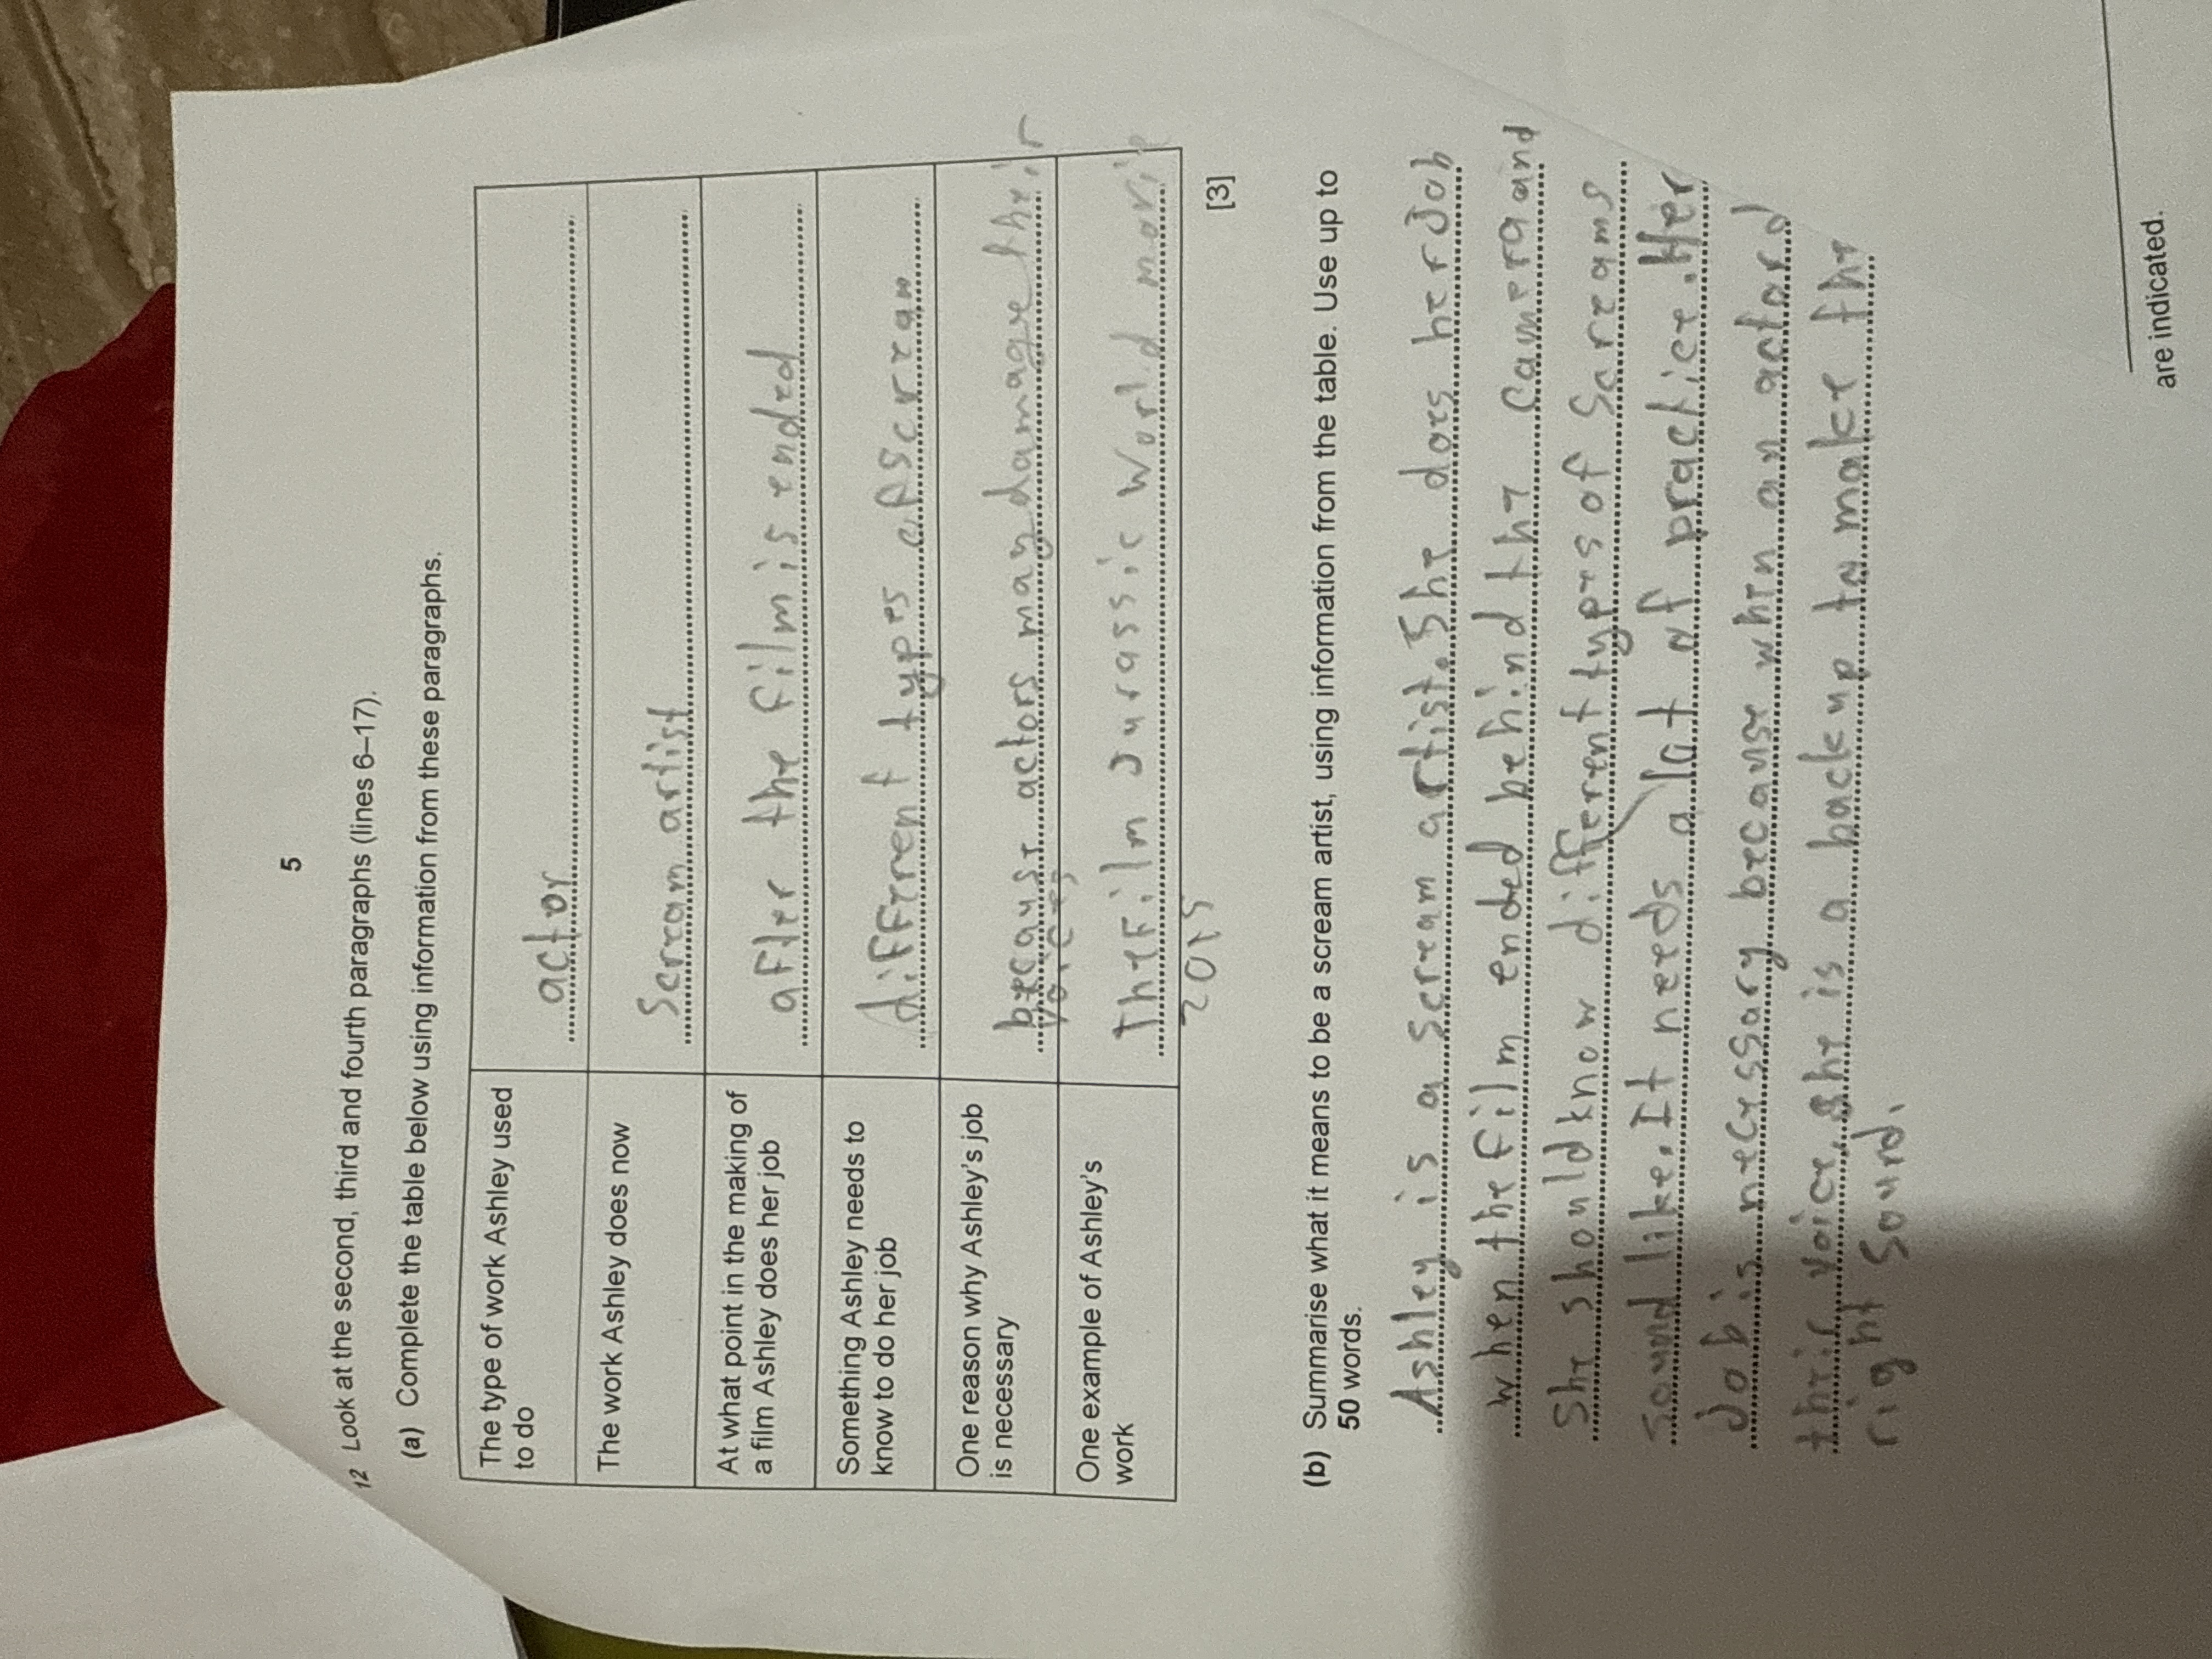 5
12 Look at the second, third and fourth paragraphs (lines 6–17).
(a) Complete the table below using information from these paragraphs.
The type of work Ashley used
to do
actor
The work Ashley does now
Scream artist
At what point in the making of
a film Ashley does her job
after the film is ended
Something Ashley needs to
know to do her job
different types of scream
One reason why Ashley's job
is necessary
because actors may damage their
voices
One example of Ashley's
work
The film Jurassic World movie
2015
[3]
(b) Summarise what it means to be a scream artist, using information from the table. Use up to
50 words.
Ashley is a scream artist. She does her Job
when the film ended behind the camera and
She should know different types of Screams
sound like. It needs a lot of practice. Her
Job is necessary because when an actor
their voice, she is a backup to make the
right Sound.
are indicated.